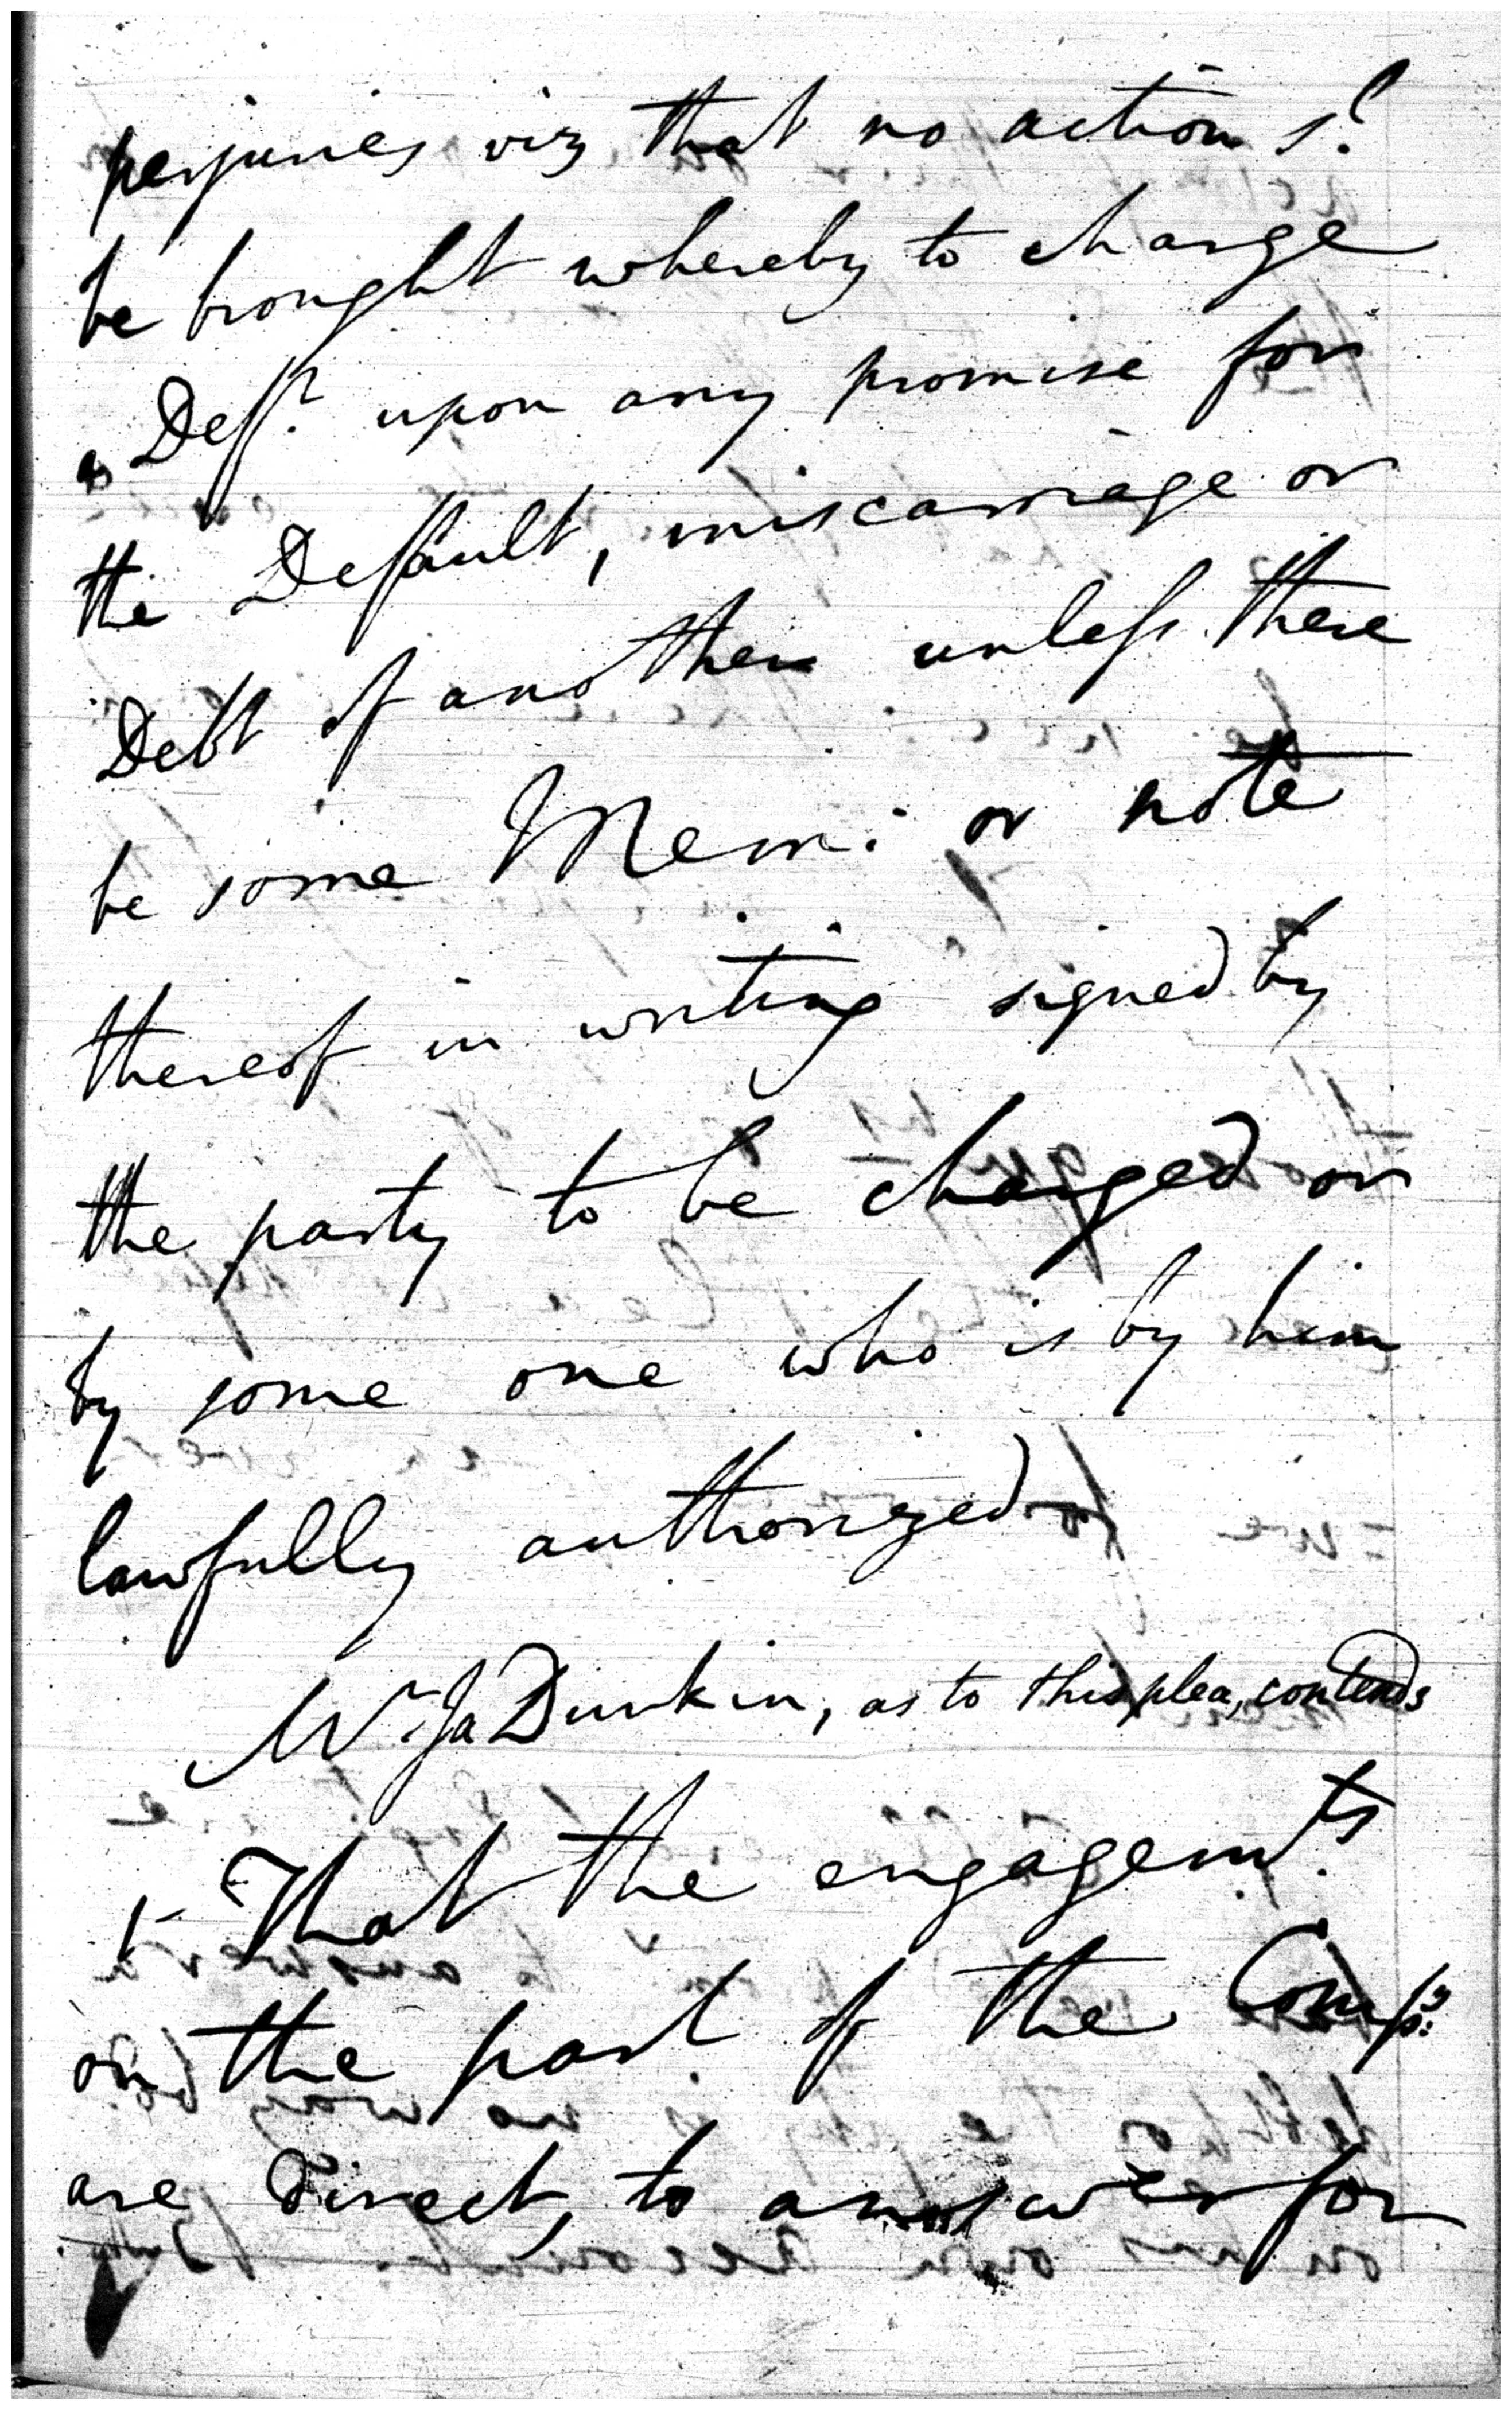 perjuries viz that no action s.d
be brought whereby to charge
a Deft. upon any promise for
the Default, miscarriage or
Debt of another unless there
be some Mem: or note
thereof in writing signed by
the party to be charged or
by some one who is by him
lawfully authorized
Mr. Ja Dunkin, as to this plea, contends
1- That the engagemts.
on the part of the Compy:
are direct, to answer for